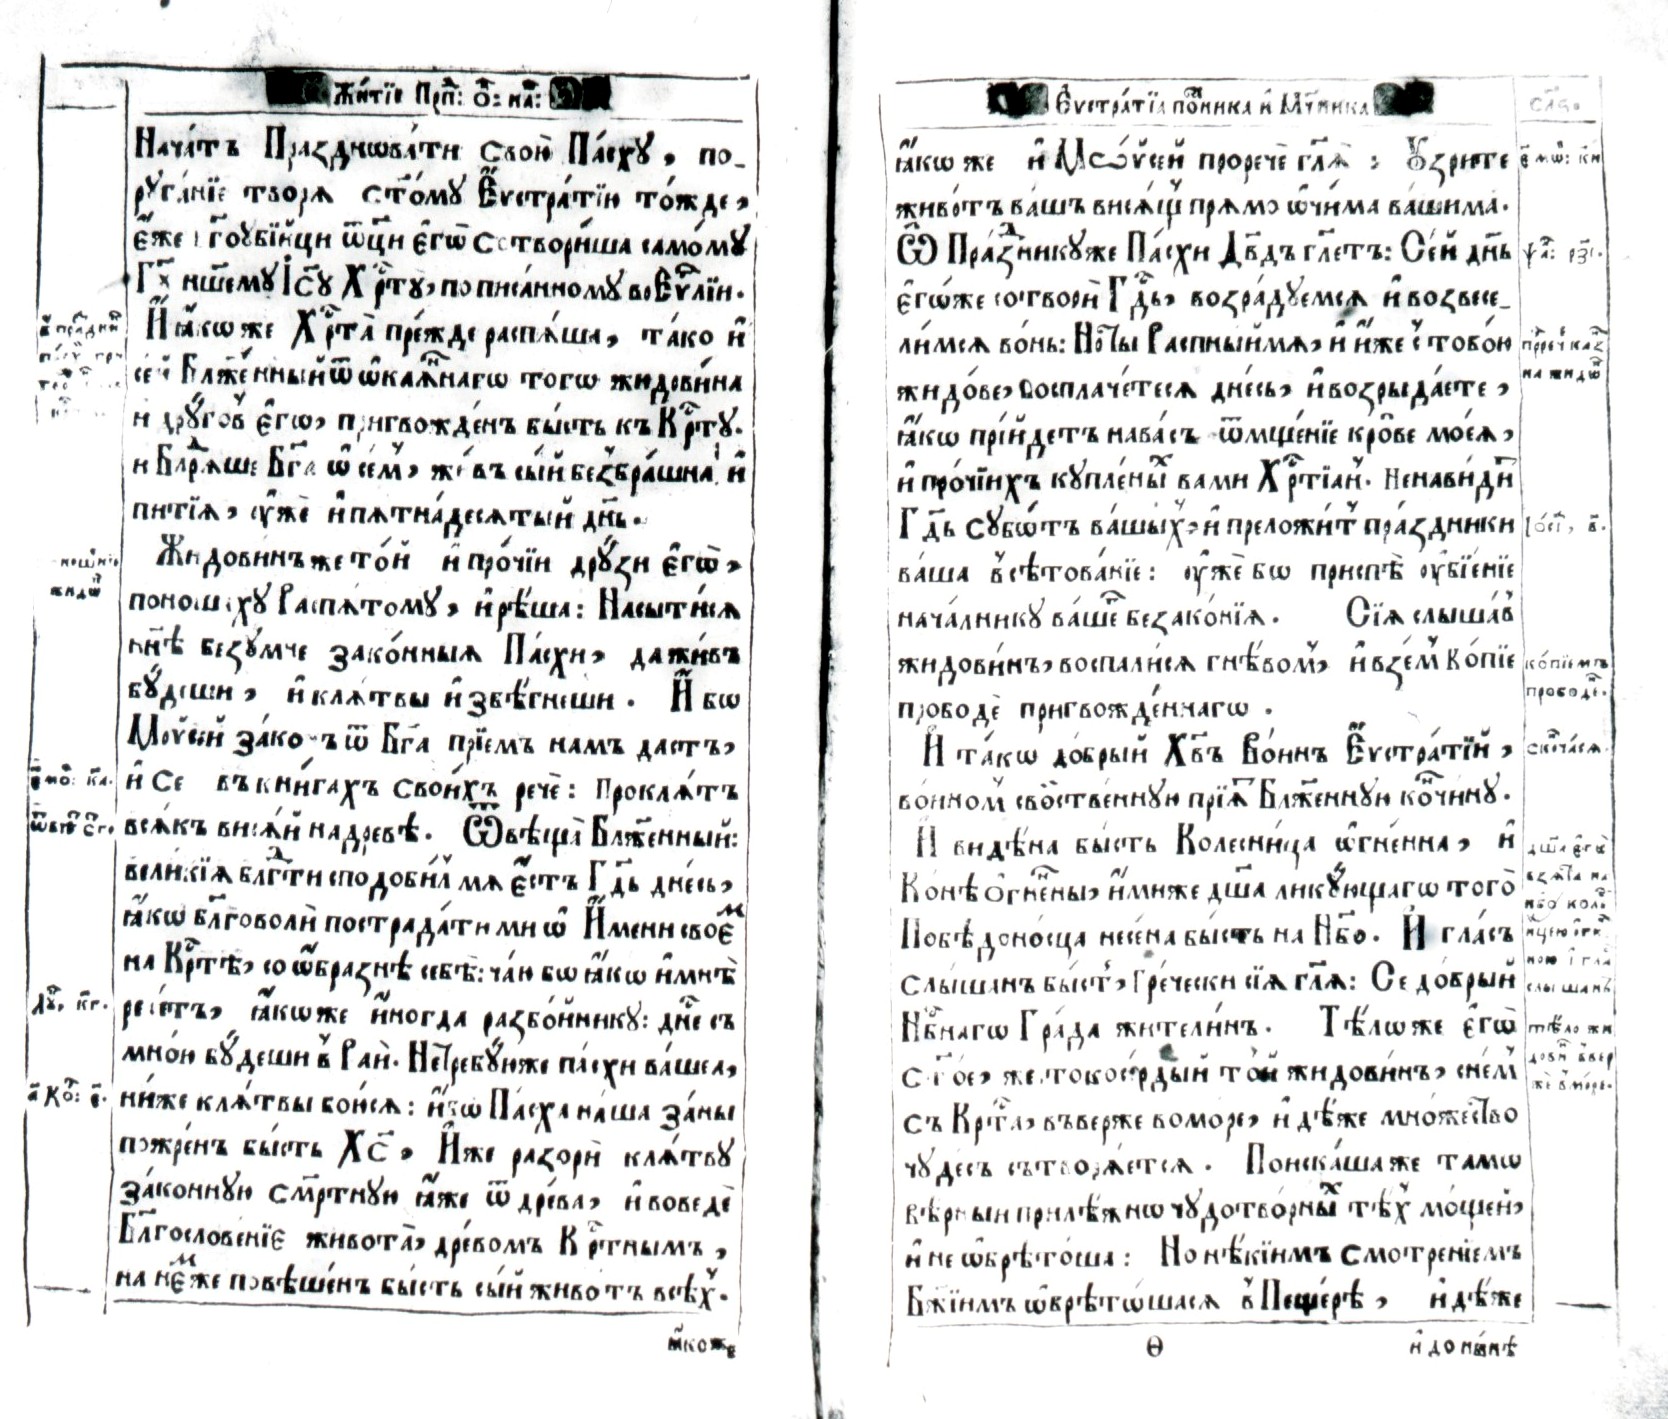 Жи́тїе Прпⷣ: О҃: на́:
Нача́тъ Празднова́ти свою̀ Па́сху, по_
руга́нїе творѧ ст҃о́му Єѵстра́тїю то́жде,
є҆́же
самомꙋ
Г҃ꙋ на́шемꙋ І҆с҃ꙋ Хрⷭ҇тꙋ̀, по пи́санномꙋ во Єѵⷢ҇лїи.
И҆ ꙗ҆́кѡже Хрⷭ҇та̀ пре́жде распѧ́ша, та́ко и҆
сей Блаже́нный ѿ ѡ҆каѧ́ннагѡ тогѡ жидови́на
и дрꙋгѡ́въ є҆гѡ̀, пригвожде́нъ бы́сть къ Крⷭ҇тꙋ̀.
и Благодарѧ́ше Бг҃а ѡ҆ се́мъ, же́въ сы́й без̾бра́шна и҆
питїѧ̀, ᲂу҆жѐ и҆ пѧтна́десѧтый дн҃ь.
Жидови́нъже то́й и҆ про́чїи дрꙋ́зи є҆гѡ̀,
поноша́хꙋ Распѧ́томꙋ, и҆ рѣ́ша: Насыти́сѧ
нн҃ѣ безꙋ́мче зако́нныѧ Па́схи, да жи́въ
бꙋ́деши, и҆ клѧ́твы и҆збѣ́гнеши. И҆ бѡ
Мѡѷсе́й зако́нъ ѿ Бг҃а прїе́мъ на́мъ да́стъ,
и҆ се въ кни́гахъ свои́хъ речѐ: проклѧ́тъ
всѧ́къ висѧ́й на дре́вѣ. Ѿвѣща̀ Блаже́нный:
вели́кїѧ блг҃ти сподо́бил мѧ є҆́стъ Гд҇ь дне́сь,
ꙗ҆́кѡ блг҃оволѝ пострада́ти ми ѡ҆ И҆́мени свое́м
на Крⷭ҇тѣ̀, соѡ҆бра́знѣ себѣ̀: ча́ю бѡ ꙗ҆́кѡ и҆ мнѣ̀
рече́тъ, ꙗ҆́кѡже и҆ногда разбо́йникꙋ: дне́сь съ
мно́ю бꙋ́деши в̾ Раѝ. Не тре́бꙋюже па́схи ва́шеѧ,
ни́же клѧ́твы бою́сѧ: и҆́бѡ Па́сха на́ша за́ны
пожре́нъ бы́сть Хс҃, И҆́же разорѝ клѧ́твꙋ
зако́ннꙋю сме́ртнꙋю ꙗ҆́же ѿ дре́ва, и҆ воведѐ
Блг҃ослове́нїе живота̀, дре́вомъ Крⷭ҇тнымъ,
на не́мже повѣ́шенъ бы́сть сы́й живо́тъ всѣ́хъ.
ꙗ҆коже
ѿ жидѡ́
є҃ мо: к҃а.
лꙋ, к҃г.
а҃ Ко: є҃.
Є҆ѵстра́тїѧ по́стника и҆ Мч҃ника
ꙗ҆́кѡже и҆ Мѡѷсе́й проречѐ гл҃ѧ: Оу҆́зрите
живо́тъ ва́шъ висѧ́щъ прѧ́мо ѻ҆чи́ма ва́шима.
Ѿ Пра́здникꙋже Па́схи Дв҃дъ гл҃етъ: Се́й дн҃ь
є҆го́же сотворѝ Гд҇ь, возра́дꙋемсѧ и҆ возвесе_
ли́мсѧ во́нь: Но ты̀ Распны́й мѧ, и҆ и҆́же с̾ тобо́ю
жидо́ве, Восплаче́тесѧ дне́сь, и҆ возрыда́ете,
ꙗ҆́кѡ прїи́детъ на ва́съ ѿмще́нїе кро́ве моеѧ̀,
и҆ про́чїихъ кꙋпле́ныхъ ва́ми Хрⷭ҇тїа́н. Ненави́ди
Гд҇ь сꙋбѡ́тъ ва́шыхъ, и҆ преложи́тъ пра́здники
ва́ша в̾ сѣ́тованїе: ᲂу҆жѐ бѡ приспѣ̀ ᲂу҆бїе́нїе
нача́лникꙋ ва́шегѡ беззако́нїѧ. Сїѧ̀ слы́шавъ
жидови́нъ, воспали́сѧ гнѣ́вомъ, и҆ взе́мъ ко́пїе
прободѐ пригвожде́ннагѡ.
И҆ та́кѡ до́брый Хв҃ъ Во́инъ Єѵстра́тїй,
во́иномъ сво́йственнꙋю прїѧ́тъ Блаже́ннꙋю кончи́нꙋ.
И҆ ви́дѣна бы́сть Колесни́ца ѻ҆́гненна, и҆
Ко́нѣ ѻ҆́гнены, и҆́миже дш҃а ликꙋ́ющагѡ тогѡ̀
Побѣдоно́сца несе́на бы́сть на Нб҃о. И҆ гла́съ
слы́шанъ бы́сть, Гре́чески сїѧ̀ гл҃ѧ: Се до́брый
Нбⷭ҇нагѡ Гра́да жите́линъ. Тѣ́ложе є҆гѡ̀
ст҃о́е, жестокосе́рдый то́й жидови́нъ, сне́мъ
съ Крⷭ҇та̀, вве́рже во мо́ре, и҆дѣ́же мно́жество
чꙋде́съ сътворѧ́етсѧ. Поиска́шаже та́мѡ
вѣ́рныи прилѣ́жнѡ чꙋдотво́рныхъ тѣ́хъ моще́й,
и҆ не ѡ҆брѣто́ша: Но нѣ́кїимъ смотре́нїемъ
Бж҃їимъ ѡ҆брѣто́шасѧ в̾ Пеще́рѣ, и҆дѣ́же
Ѳ
и҆ до ны́нѣ
є҃ мѡ: к҃и
ѱа: рз҃і.
на жидѡ́
ко́пїемъ
прободе́.
сконча́сѧ.
слы́шанъ
тѣ́ло жи